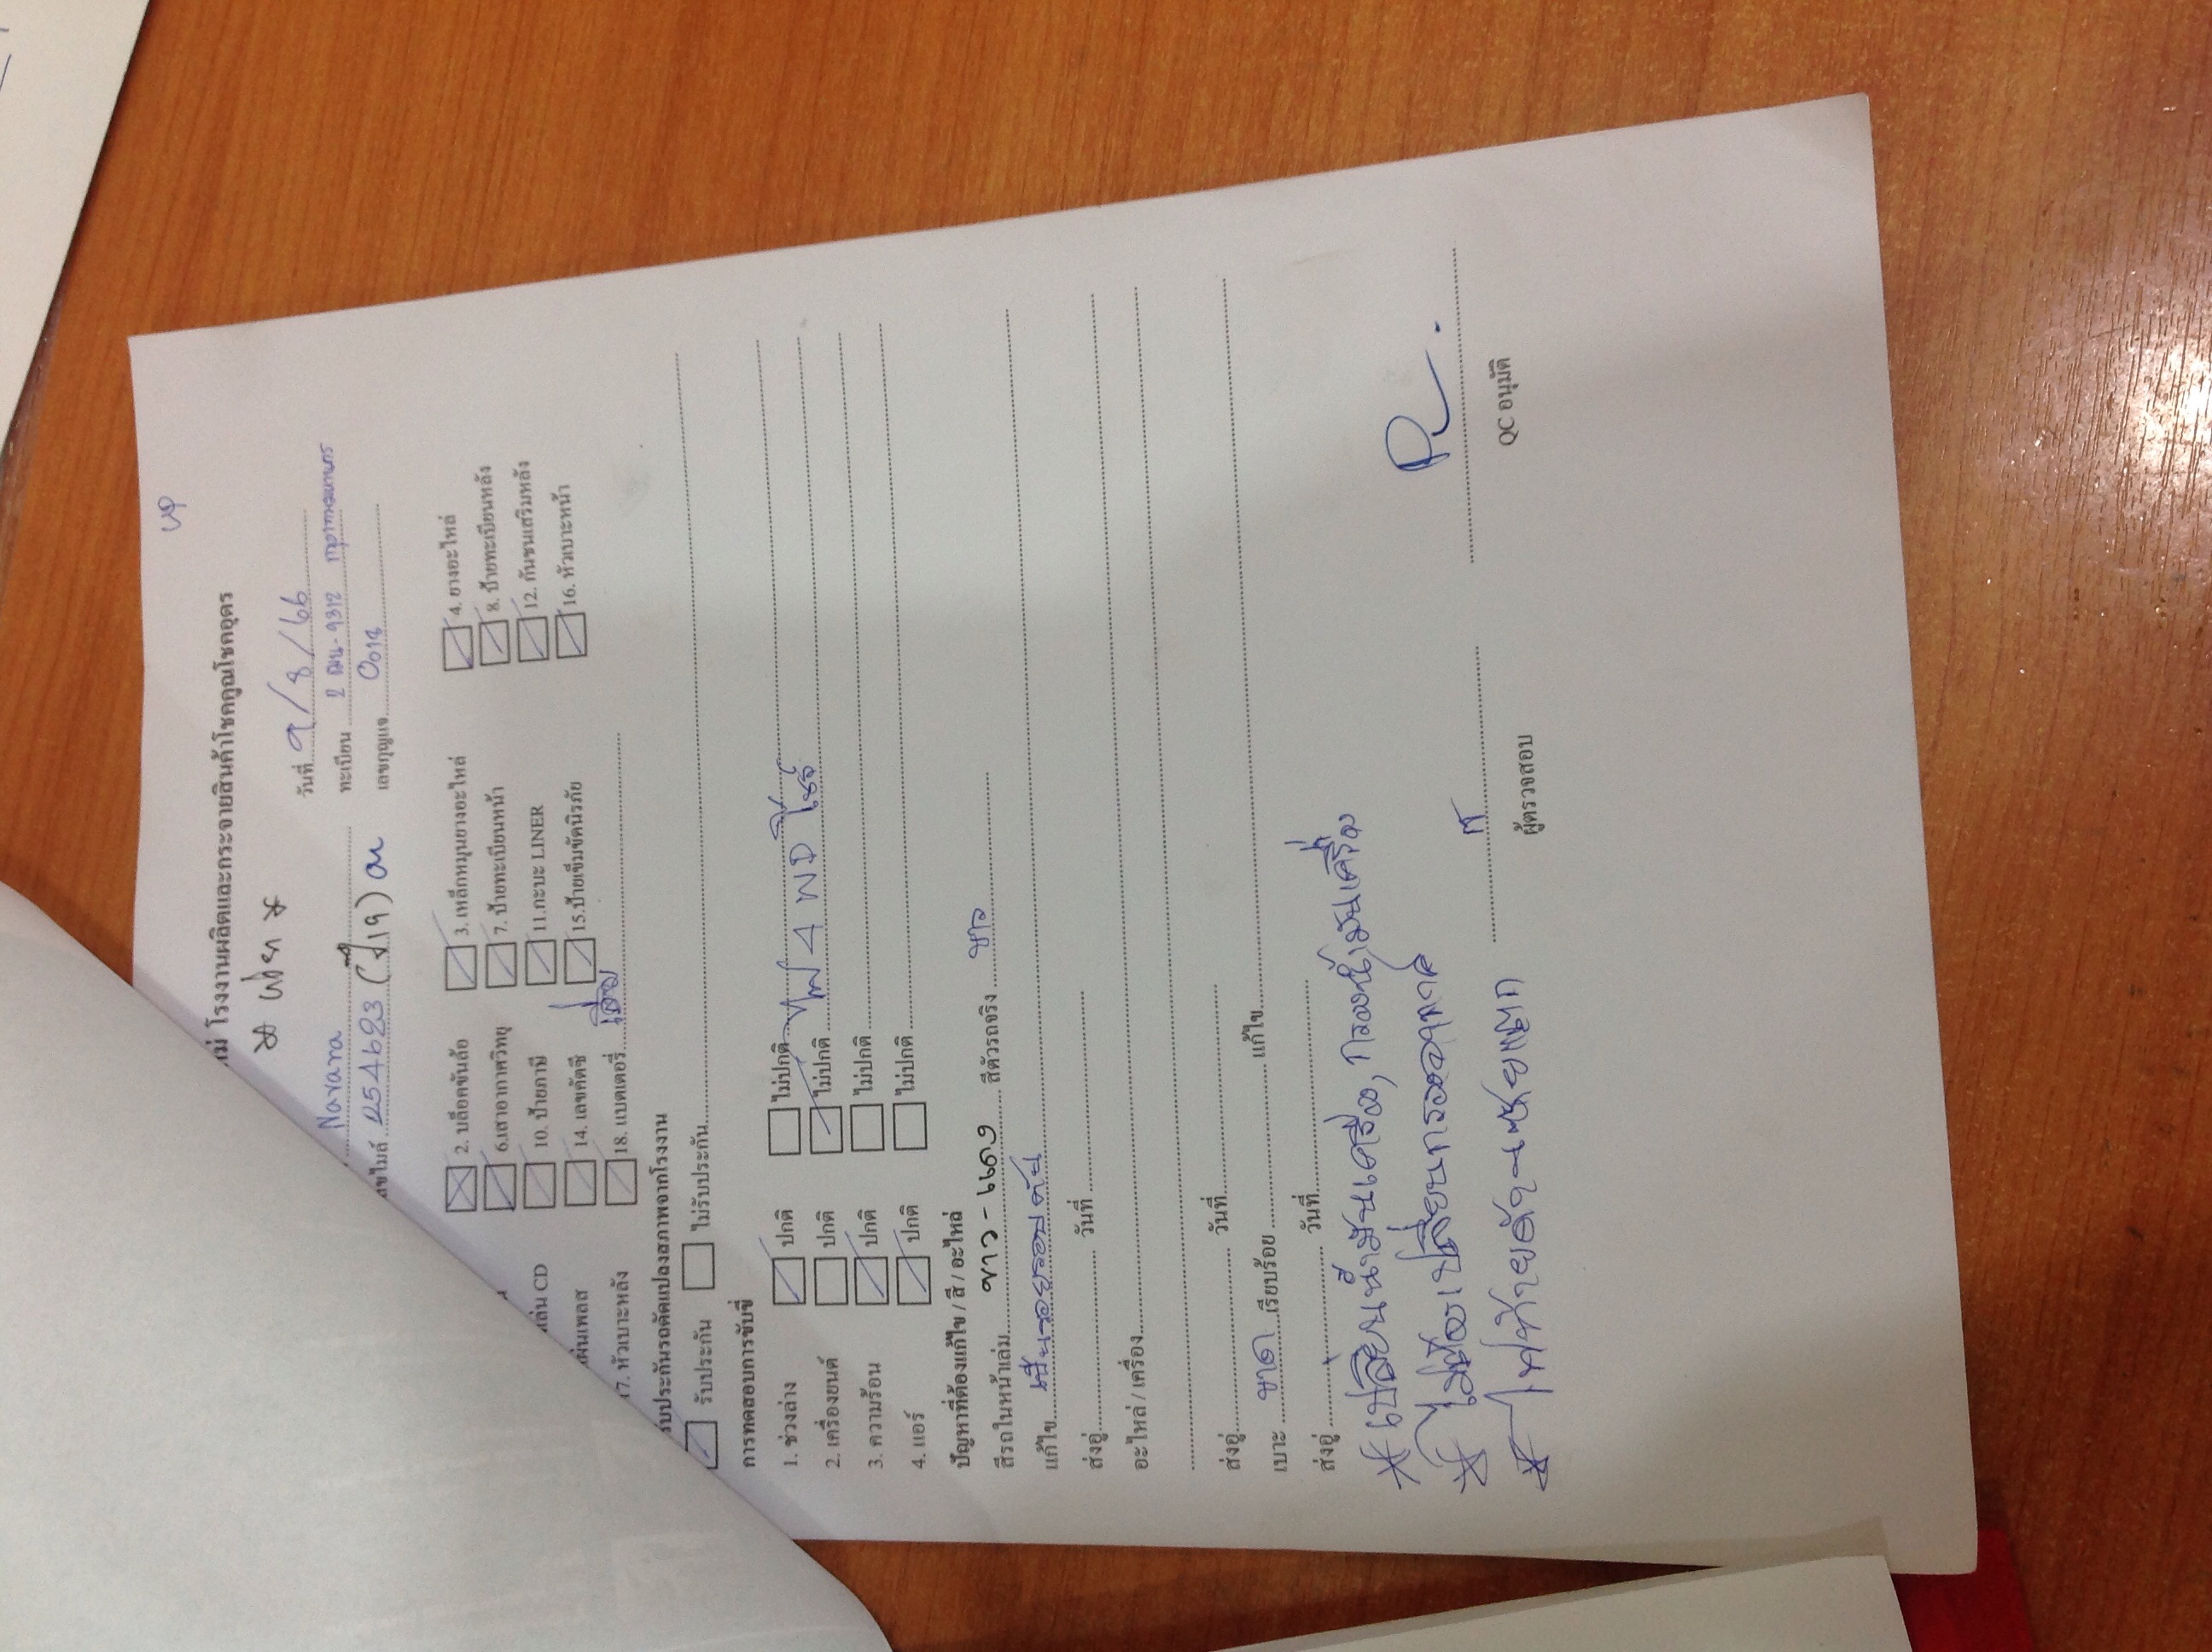 นp
หม่ โรงงานผลิตและกระจายสินค้าโชคคูณโชคอุดร
วันที่ 9/8/66
Navara ทะเบียน 2 ฒน-9312 กรุงเทพมหานคร
ลขไมล์ 254623 เลขกุญแจ 0018
2. บล็อคขันล้อ 3. เหล็กหมุนยางอะไหล่ 4. ยางอะไหล่
6.เสาอากาศวิทยุ 7. ป้ายทะเบียนหน้า 8. ป้ายทะเบียนหลัง
เล่น CD 10. ป้ายภาษี 11.กะบะ LINER 12. กันชนเสริมหลัง
ผ่นเพลส 14. เลขคัตซี 15.ป้ายเข็มขัดนิรภัย 16. หัวเบาะหน้า
17. หัวเบาะหลัง 18. แบตเตอรี่ เสื่อม
รับประกันรถดัดแปลงสภาพจากโรงงาน
รับประกัน ไม่รับประกัน
การทดสอบการขับขี่
1. ช่วงล่าง ปกติ ไม่ปกติ
2. เครื่องยนต์ ปกติ ไม่ปกติ ไฟ 4 WD โชว์
3. ความร้อน ปกติ ไม่ปกติ
4. แอร์ ปกติ ไม่ปกติ
ปัญหาที่ต้องแก้ไข / สี / อะไหล่
สีรถในหน้าเล่ม ขาว - แดง สีตัวรถจริง ขาว
แก้ไข เป็นรอยรอบคัน
ส่งอู่ วันที่
อะไหล่ / เครื่อง
ส่งอู่ วันที่
เบาะ ขาด เรียบร้อย แก้ไข
ส่งอู่ วันที่
* เปลี่ยนน้ำมันเครื่อง, กรองน้ำมันเครื่อง
* ไม่ต้องเปลี่ยนกรองอากาศ
* ไฟท้ายด้านซ้ายแตก
ผู้ตรวจสอบ QC อนุมัติ